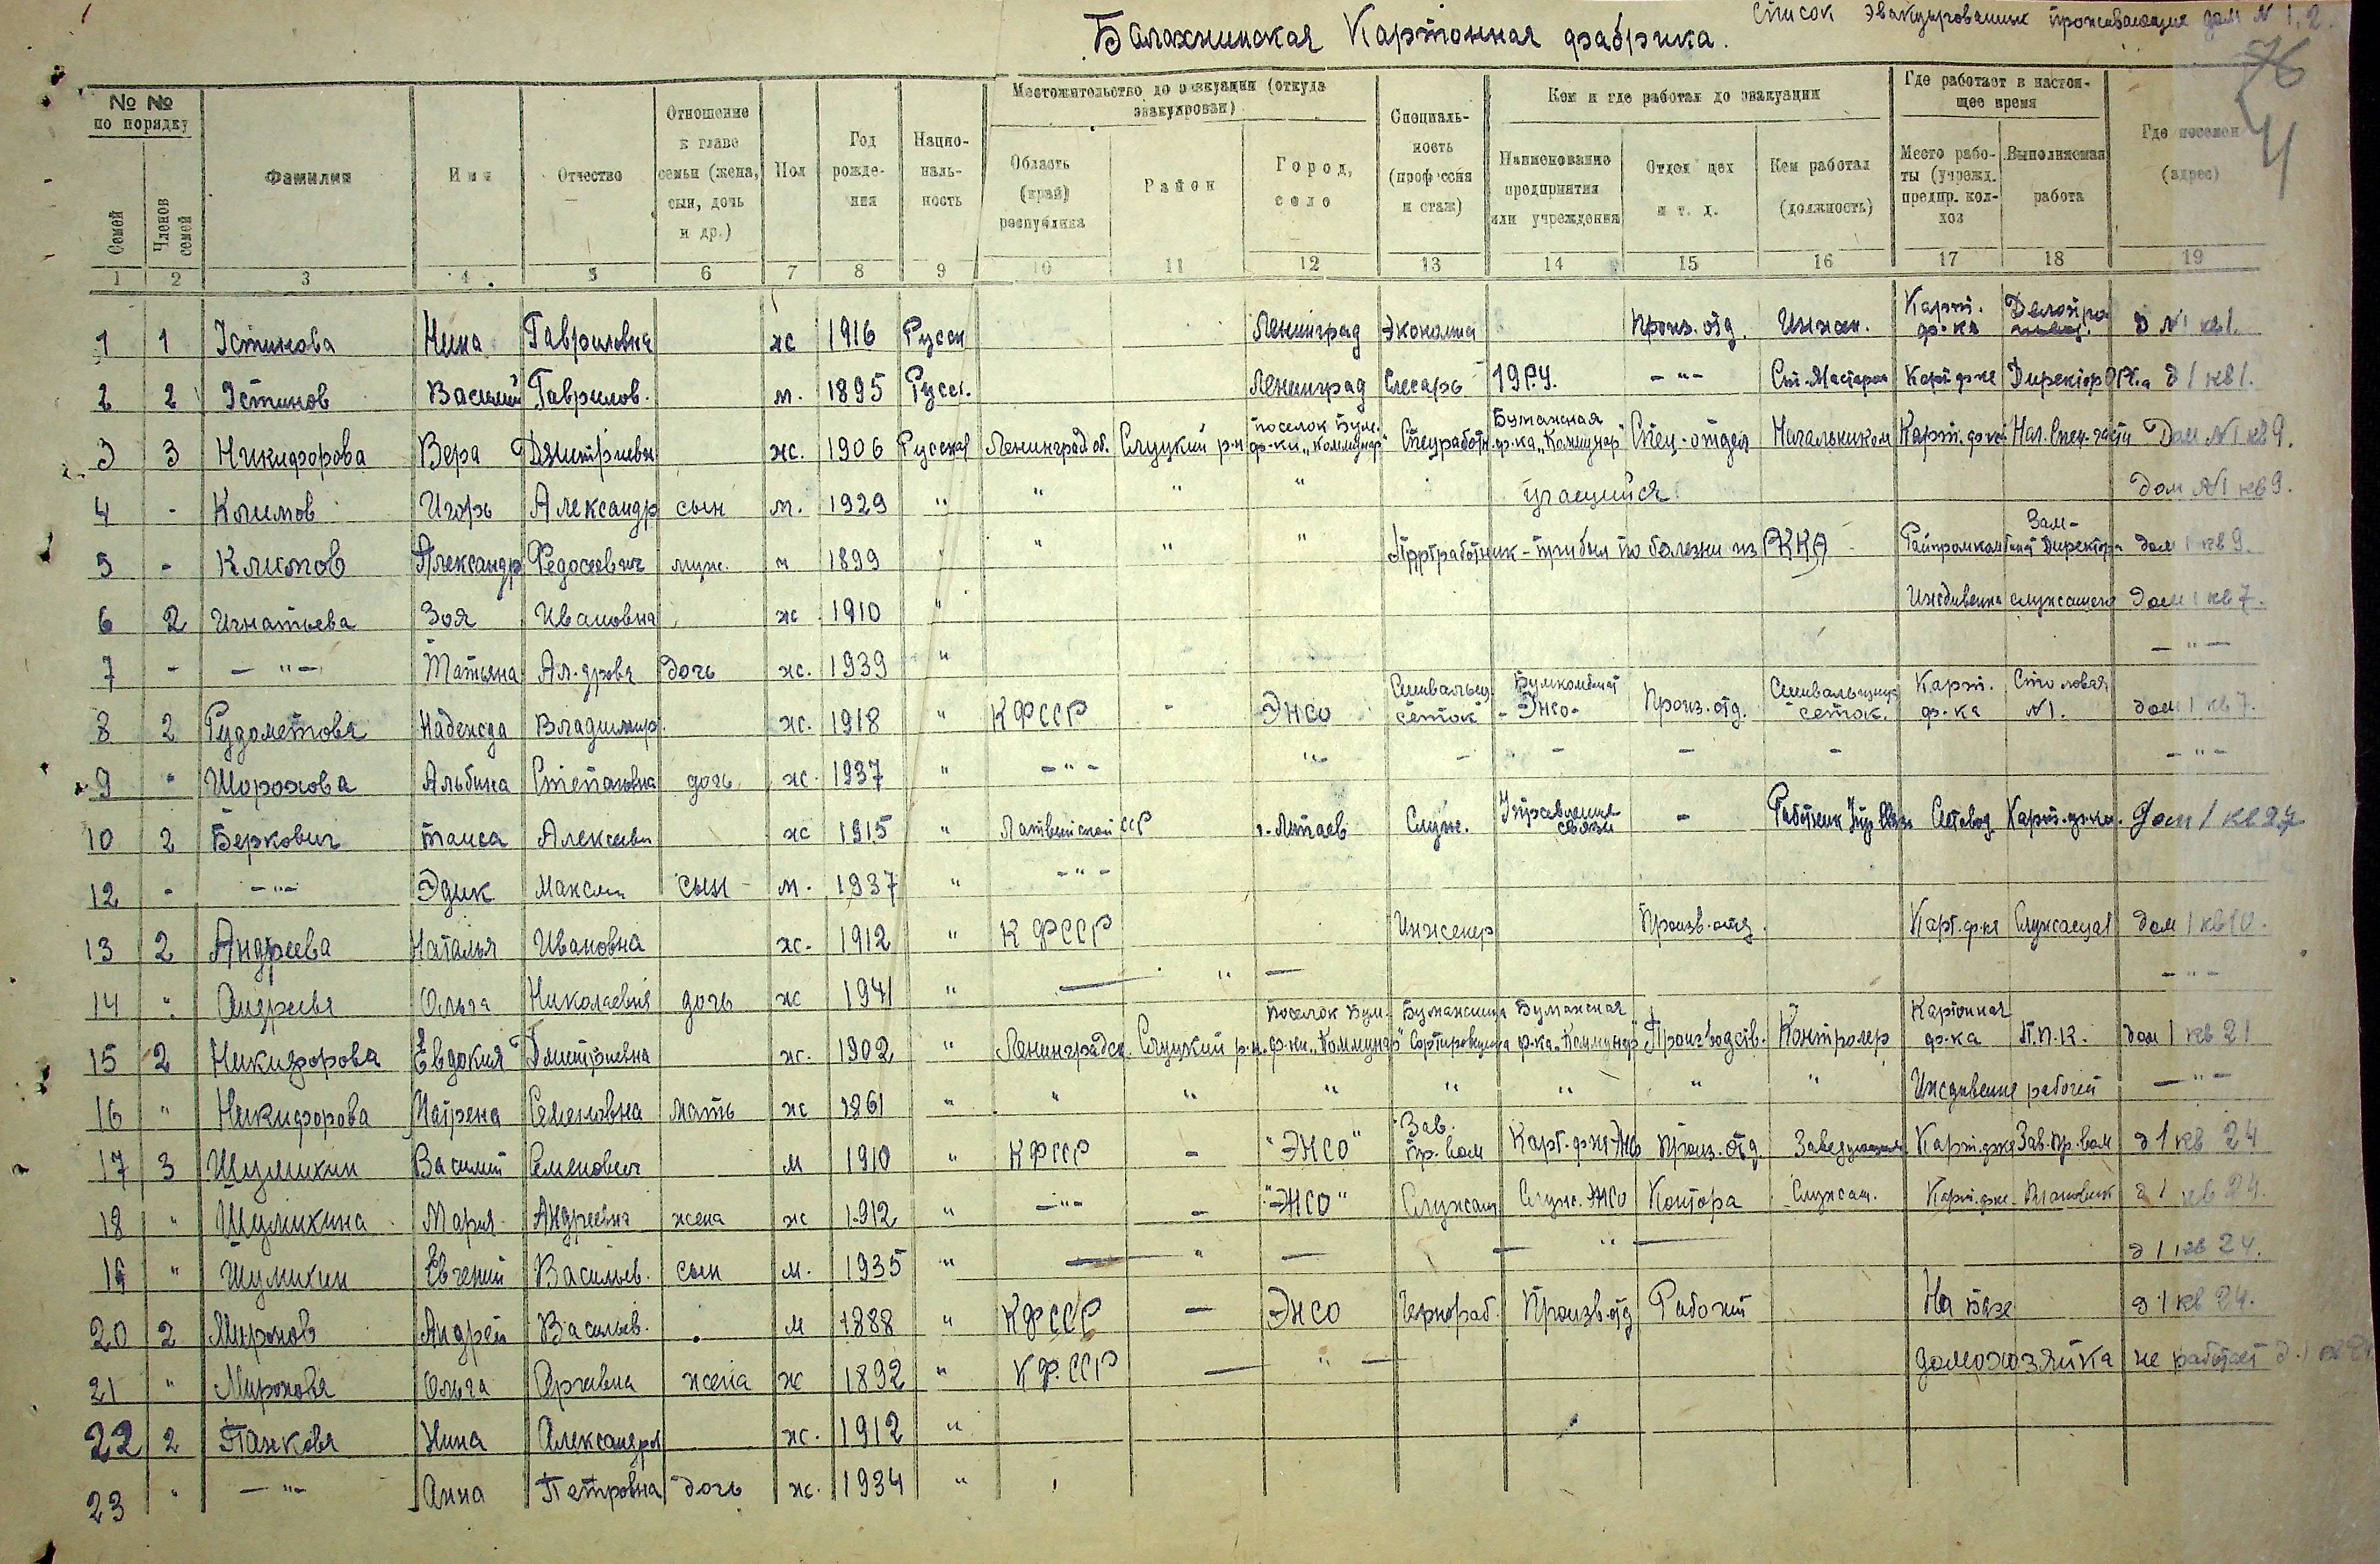 Список эвакуированных проживающие дом N 1, 2.
Балахнинская Картонная фабрика.
76
4
№ № по порядку | Фамилия | Имя | Отчество | Отношение к главе семьи (жена, сын, дочь и др.) | Пол | Год рождения | Национальность | Местожительство до эвакуации (откуда эвакуирован) | Специальность (профессия и стаж) | Кем и где работал до эвакуации | Где работает в настоящее время | Где поселен (адрес)
Семей | Членов семей | Область (край) республика | Район | Город, село | Наименование предприятия или учреждения | Отдел цех и т. д. | Кем работал (должность) | Место работы (учрежд. предпр. колхоз | Выполняемая работа
1 | 2 | 3 | 4 | 5 | 6 | 7 | 8 | 9 | 10 | 11 | 12 | 13 | 14 | 15 | 16 | 17 | 18 | 19
1 | 1 | Устинова | Нина | Гавриловна | ж | 1916 | Русск | Ленинград | Экономист | Произ. отд. | Инжен. | Карт. ф-ка | д N1 кв 1.
2 | 2 | Устинов | Василий | Гаврилов. | м. | 1895 | Русск. | Ленинград | Слесарь | 19 Р.У. | -"- | Ст. Мастером | Карт ф-ке | Директор | д 1 кв 1.
3 | 3 | Никифорова | Вера | Дмитриевн | ж. | 1906 | Русская | Ленинград об. | Слуцкий р-н | поселок Бум. ф-ки "Коммунар" | Спецработн. | Бумажная ф-ка "Коммунар" | Спец-отдел | Начальником | Карт. ф-ке | Нач. Спец. части | Дом N1 кв 9.
4 | - | Климов | Игорь | Александр | сын | м. | 1929 | " | " | " | " | учащийся | Дом N1 кв 9.
5 | - | Климов | Александр | Федосеевич | муж. | м | 1899 | " | " | " | " | Партработник - прибыл по болезни из РККА | Райпромкомбинат | Зам- Директора | дом 1 кв 9.
6 | 2 | Игнатьева | Зоя | Ивановна | ж | 1910 | " | Иждивенка служащего | дом 1 кв 7.
7 | - | -"- | Татьяна | Ал-дровн | дочь | ж. | 1939 | " | -"-
8 | 2 | Рудометова | Надежда | Владимир. | ж. | 1918 | " | КФССР | - | Энсо | Сшивальщ. сеток | Бумкомбинат -Энсо- | Произ. отд. | Сшивальщица сеток. | Карт. ф-ка | Столовая N1. | дом 1 кв 7.
9 | - | Шорохова | Альбина | Степановна | дочь | ж. | 1937 | " | -"- | " | - | - | - | - | -"-
10 | 2 | Беркович | Таиса | Алексеевн | ж | 1915 | " | Латвийской ССР | Служ. | Управление связи | - | Работник Упр Связи | Счетовод | Карт. ф-ки. | Дом 1 кв 27
12 | - | -"- | Эдик | Максим | сын | м. | 1937 | " | -"-
13 | 2 | Андреева | Наталья | Ивановна | ж. | 1912 | " | КФССР | Инженер | Произв. отд. | Карт. ф-ке | Служащая | дом 1 кв 10.
14 | " | Андреева | Ольга | Николаевна | дочь | ж | 1941 | " | — " — | -"-
15 | 2 | Никифорова | Евдокия | Дмитриевна | ж. | 1902 | " | Ленинградск. | Слуцкий р-н. | поселок Бум. ф-ки "Коммунар" | Бумажница Сортировщица | Бумажная ф-ка "Коммунар" | Производств. | Контролер | Картонная ф-ка | П.П.К. | дом 1 кв 21
16 | " | Никифорова | Матрена | Семеновна | мать | ж | 1861 | " | " | " | " | " | " | " | " | Иждивение рабочей | -"-
17 | 3 | Шумихин | Василий | Семенович | м | 1910 | " | КФССР | - | "ЭНСО" | Зав. пр. вом | Карт. ф-ке Энсо | Произ. отд | Заведующим | Карт. ф-ке | Зав. пр. вом | д 1 кв 24
18 | " | Шумихина | Мария | Андреевна | жена | ж | 1912 | " | -"- | - | "ЭНСО" | Служащ | Служ. ЭНСО | Контора | Служащ. | Карт. ф-ке | Плановик | д 1 кв 24.
19 | " | Шумихин | Евгений | Васильев. | сын | м. | 1935 | " | — " — | — " — | д 1 кв 24.
20 | 2 | Миронов | Андрей | Васильев. | м | 1888 | " | КФССР | — | Энсо | Чернораб. | Произв. отд | Рабочий | На базе | д 1 кв 24.
21 | " | Миронова | Ольга | жена | ж | 1892 | " | КФ.ССР | — " — | домохозяйка | не работает д.1
22 | 2 | Панкова | Нина | Александров | ж. | 1912 | "
23 | " | -"- | Анна | Петровна | дочь | ж. | 1934 | "